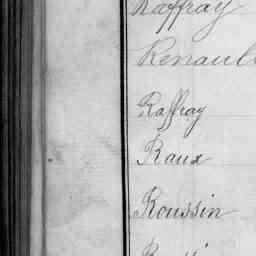 Raffray
Renault
Raffray
Raux
Roussin